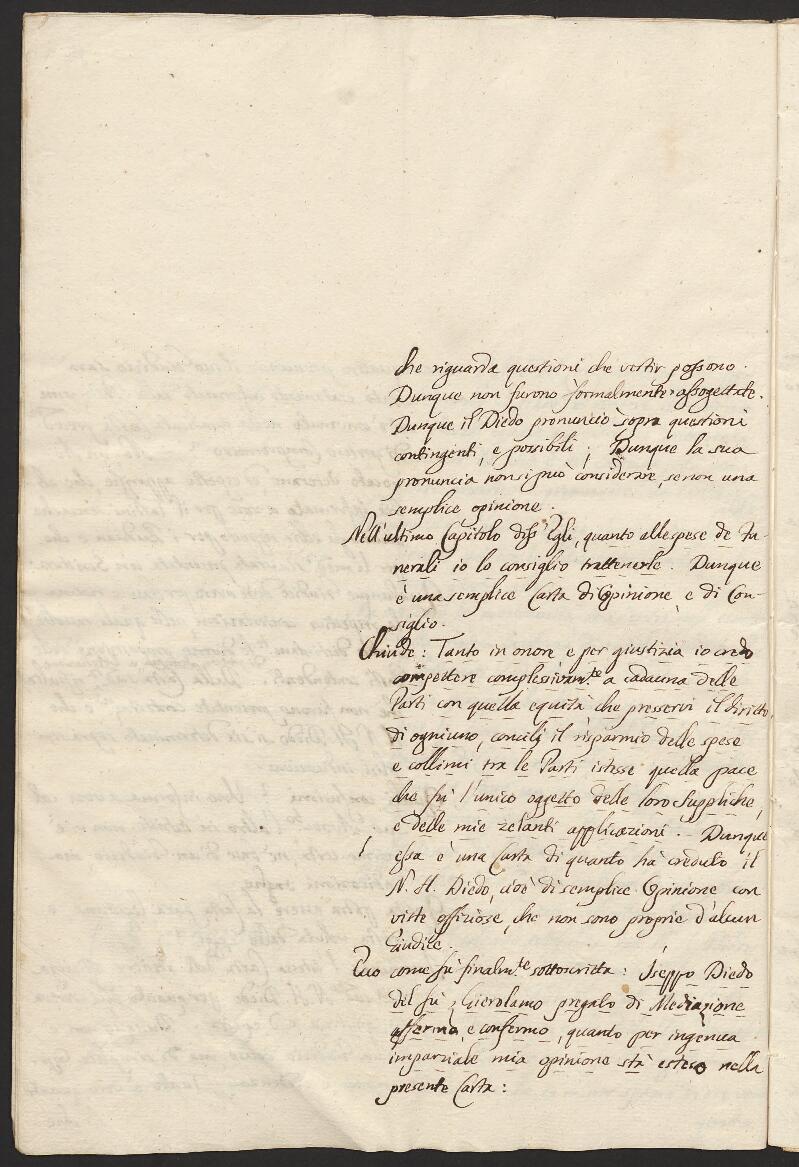 che riguarda questioni che vertir possono.
Dunque non furono formalmente assogettate.
Dunque il Diedo pronunciò sopra questioni
contingenti, e possibili; Dunque la sua
pronuncia non si può considerare, se non una
semplice opinione.
Nell'ultimo Capitolo diss'Egli, quanto alle spese de Fu-
nerali io lo consiglio trattenerle. Dunque
è una semplice Carta di Opinione e di Con-
siglio.
Chiude: Tanto in onore e per giustizia io credo
competere complessivam.te a cadauna delle
Parti con quella equità che preservi il diritto
di ogniuno, concilj il risparmio delle spese
e collimi tra le Parti istesse quella pace
che fù l'unico oggetto delle loro suppliche,
e delle mie zelanti applicazioni. Dunque
essa è una Carta di quanto hà creduto il
N. H. Diedo, cioè di semplice Opinione con
viste offiziose, che non sono proprie d'alcun
Giudice.
Ecco come fù finalm.te sottoscritta: Iseppo Diedo
del fù Gierolamo pregato di Mediazione
affermo, e confermo, quanto per ingenua
imparziale mia opinione stà esteso nella
presente Carta: